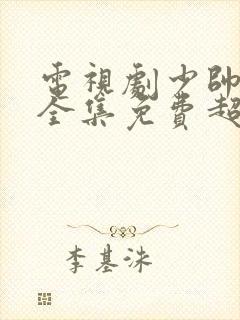 電視劇少帥
全集免費超
李基洙